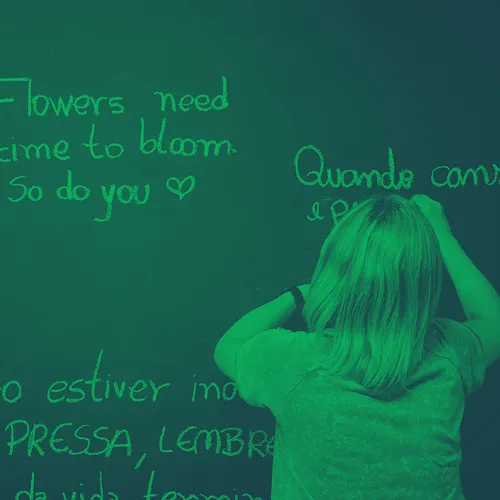 Flowers need
time to bloom.
So do you ♡
Quando
e
o estiver
PRESSA, LEMBRE
da vida